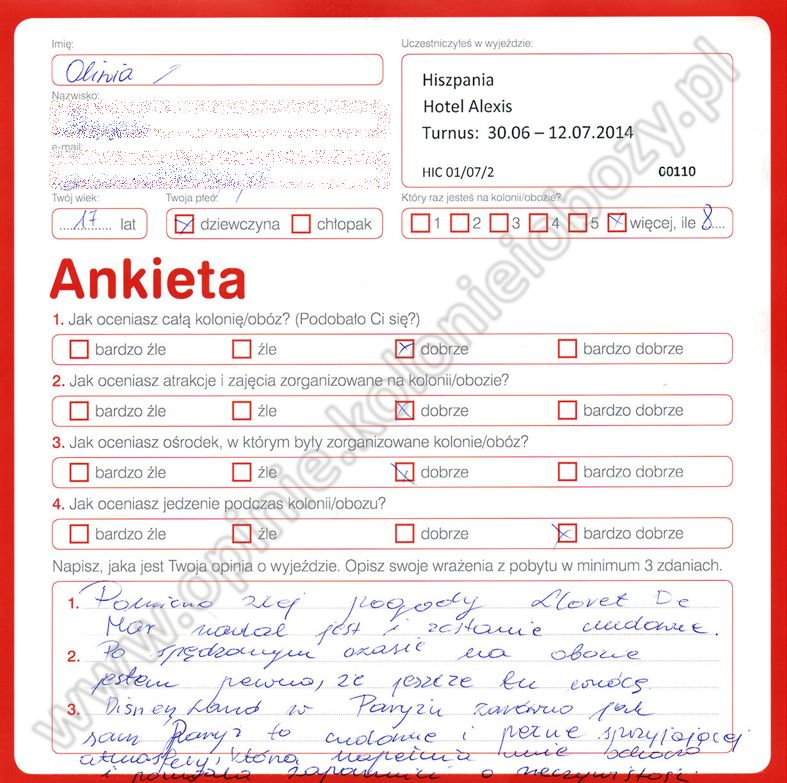 Imię:
Oliwia
Uczestniczyłeś w wyjeździe:
Hiszpania
Hotel Alexis
Turnus: 30.06 – 12.07.2014
HIC 01/07/2 00110
Nazwisko:
e-mail:
Twój wiek: Twoja płeć: Który raz jesteś na kolonii/obozie?
17 lat dziewczyna chłopak 1 2 3 4 5 więcej, ile 8
Ankieta
1. Jak oceniasz całą kolonię/obóz? (Podobało Ci się?)
bardzo źle źle dobrze bardzo dobrze
2. Jak oceniasz atrakcje i zajęcia zorganizowane na kolonii/obozie?
bardzo źle źle dobrze bardzo dobrze
3. Jak oceniasz ośrodek, w którym były zorganizowane kolonie/obóz?
bardzo źle źle dobrze bardzo dobrze
4. Jak oceniasz jedzenie podczas kolonii/obozu?
bardzo źle źle dobrze bardzo dobrze
Napisz, jaka jest Twoja opinia o wyjeździe. Opisz swoje wrażenia z pobytu w minimum 3 zdaniach.
1. Pomimo złej pogody Lloret De
Mar nadal jest i zostanie cudowne.
2. Po spędzonym czasie na obozie
jestem pewna, że jeszcze tu wrócę.
3. Disney Land w Paryżu zarówno jak
sam Paryż to cudowne i pełne sprzyjającej
atmosfery, która napełnia mnie
i pozwala zapomnieć o rzeczywistości.
www.opinie.kolonieiobozy.pl